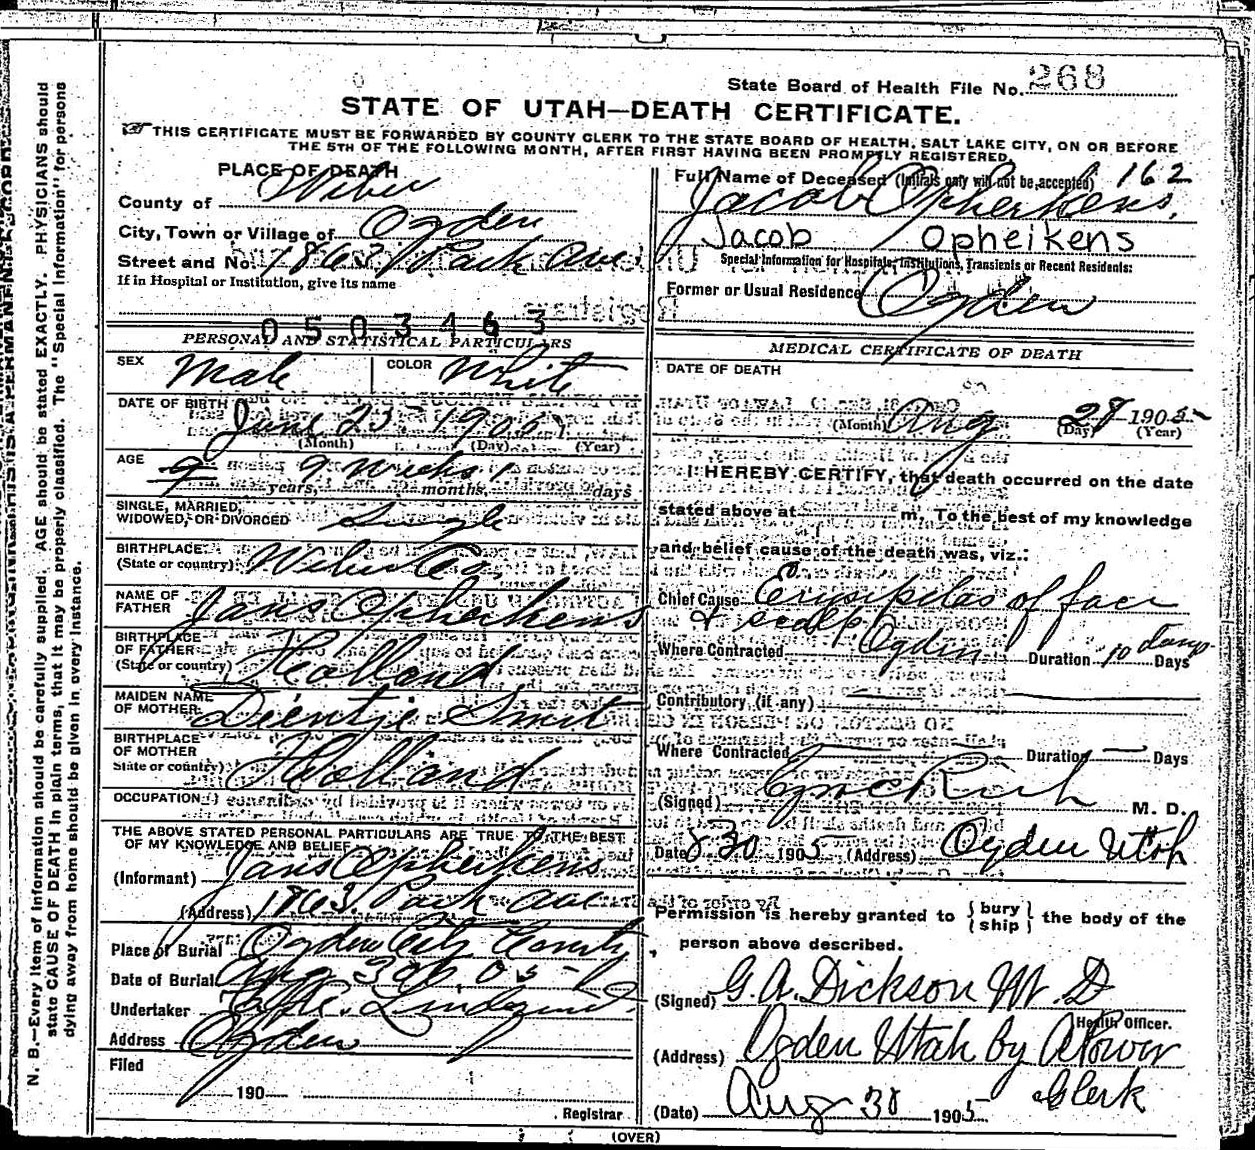 State Board of Health File No. 268
STATE OF UTAH—DEATH CERTIFICATE.
THIS CERTIFICATE MUST BE FORWARDED BY COUNTY CLERK TO THE STATE BOARD OF HEALTH, SALT LAKE CITY, ON OR BEFORE
THE 5TH OF THE FOLLOWING MONTH, AFTER FIRST HAVING BEEN PROMPTLY REGISTERED.
PLACE OF DEATH
County of Weber
City, Town or Village of Ogden
Street and No. 1863 Park Ave
If in Hospital or Institution, give its name
0503463
Full Name of Deceased (Initials only will not be accepted) 162
Jacob Opheikens.
Jacob Opheikens
Special Information for Hospitals, Institutions, Transients or Recent Residents:
Former or Usual Residence Ogden
PERSONAL AND STATISTICAL PARTICULARS
SEX Male COLOR White
DATE OF BIRTH June 25 1905
(Month) (Day) (Year)
AGE 9 9 weeks 1
years, months, days
SINGLE, MARRIED,
WIDOWED, OR DIVORCED Single
BIRTHPLACE
(State or country) Weber Co.
NAME OF
FATHER Jans Opheikens
BIRTHPLACE
OF FATHER
(State or country) Holland
MAIDEN NAME
OF MOTHER Dientje Smit
BIRTHPLACE
OF MOTHER
State or country) Holland
OCCUPATION
THE ABOVE STATED PERSONAL PARTICULARS ARE TRUE TO THE BEST
OF MY KNOWLEDGE AND BELIEF
(Informant) Jans Opheikens
(Address) 1863 Park Ave
Place of Burial Ogden City
Date of Burial Aug 30th 05
Undertaker Lindquist
Address Ogden
Filed
190
Registrar
MEDICAL CERTIFICATE OF DEATH
DATE OF DEATH
Aug 28 1905
(Month) (Day) (Year)
I HEREBY CERTIFY, that death occurred on the date
stated above at m, To the best of my knowledge
and belief cause of the death was, viz.:
Chief Cause Erisipelas of face
& scalp
Where Contracted Ogden Duration 10 days Days
Contributory (if any)
Where Contracted Duration Days
(Signed) M. D.
Date 8 30 1905 (Address) Ogden Utah
Permission is hereby granted to { bury ship } the body of the
person above described.
(Signed) G. A. Dickson M. D
Health Officer.
(Address) Ogden Utah by
Clerk
(Date) Aug 30 1905
(OVER)
N. B.—Every item of information should be carefully supplied. AGE should be stated EXACTLY. PHYSICIANS should
state CAUSE OF DEATH in plain terms, that it may be properly classified. The "Special Information" for persons
dying away from home should be given in every instance.